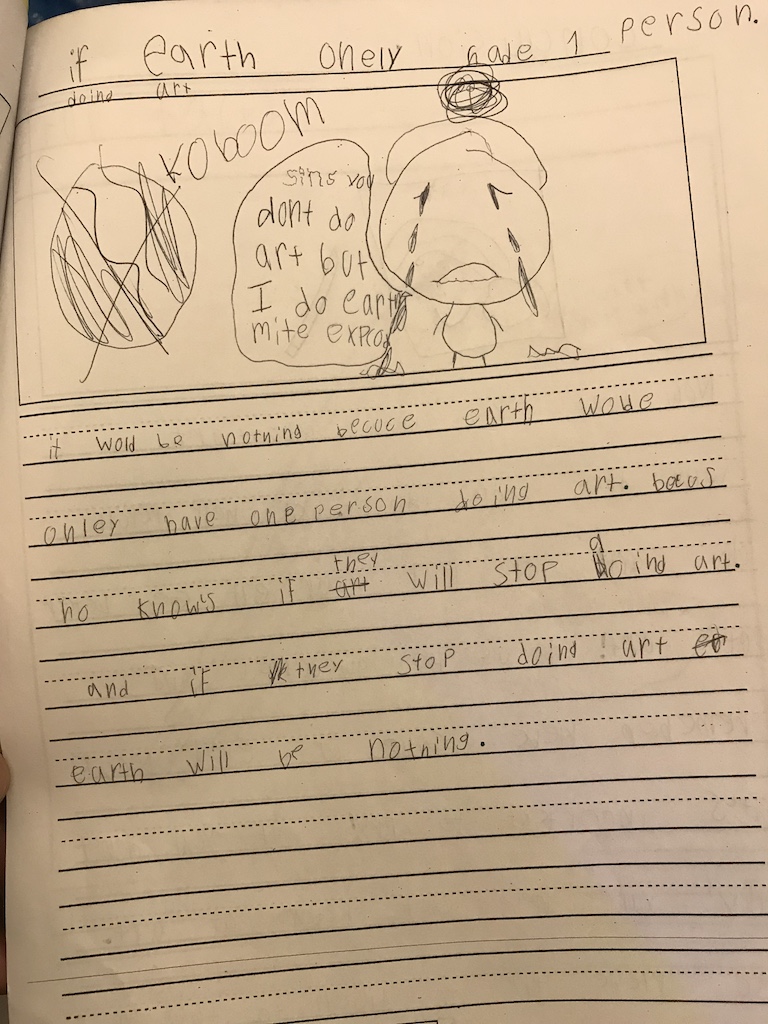 if earth onely hade 1 person.
doing art
KOBOOM
sins you
dont do
art but
I do earth
mite explod
it wold be notning becuce earth wode
onley have one person doing art. becus
ho know's if they will stop doind art.
and if they stop doind art
earth will be notning.